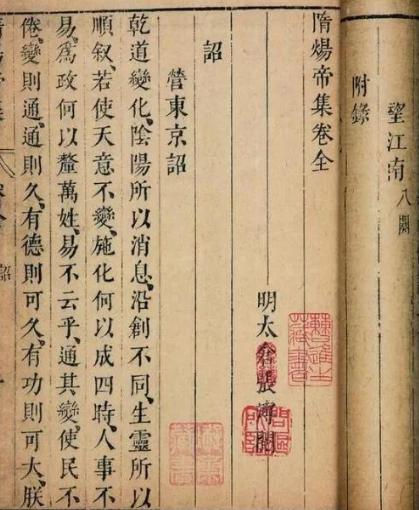 望江南八闋
附錄
隋煬帝集卷全
明太倉張溥閱
詔
營東京詔
乾道變化、陰陽所以消息、沿創不同、生靈所以
順叙、若使天意不變、施化何以成四時、人事不
易、爲政何以釐萬姓、易不云乎、通其變、使民不
倦、變則通、通則久、有德則可久、有功則可大、朕
詔